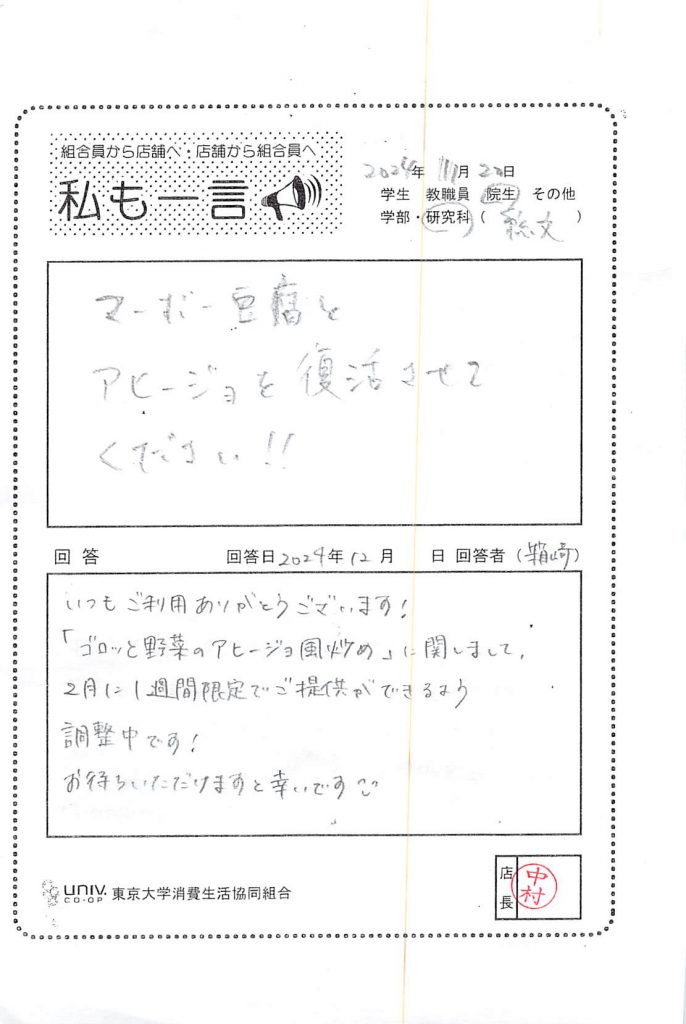 組合員から店舗へ・店舗から組合員へ
私も一言
2024年 11月 20日
学生 教職員 院生 その他
学部・研究科（ 総文 ）
マーボー豆腐と
アヒージョを復活させて
ください!!
回答 回答日2024年12月 日 回答者（箱崎）
いつもご利用ありがとうございます!
「ゴロッと野菜のアヒージョ風炒め」に関しまして、
2月に1週間限定でご提供ができるよう
調整中です!
お待ちいただけますと幸いです
UNIV. CO-OP 東京大学消費生活協同組合
店長 中村